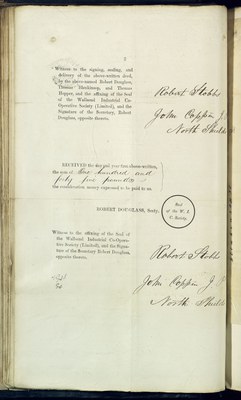 Witness to the signing, sealing, and
delivery of the above-written deed,
by the above-named Robert Douglass,
Thomas and Thomas
Hopper, and the affixing of the Seal
of the Wallsend Industrial Co-
Operative Society (Limited), and the
Signature of the Secretary, Robert
Douglass, opposite thereto.
Robert Stobbs
John Coppin J.
North Shields
RECEIVED the day and year first above-written,
the sum of One hundred and
forty five pounds
the consideration money expressed to be paid to us.
ROBERT DOUGLASS, Secty.
Seal
of the W. I.
C. Society.
Witness to the affixing of the Seal of
the Wallsend Industrial Co-Opera-
tive Society (Limited), and the Signa-
ture of the Secretary Robert Douglass,
opposite thereto.
Robert Stobbs
John Coppin J. P.
North Shields